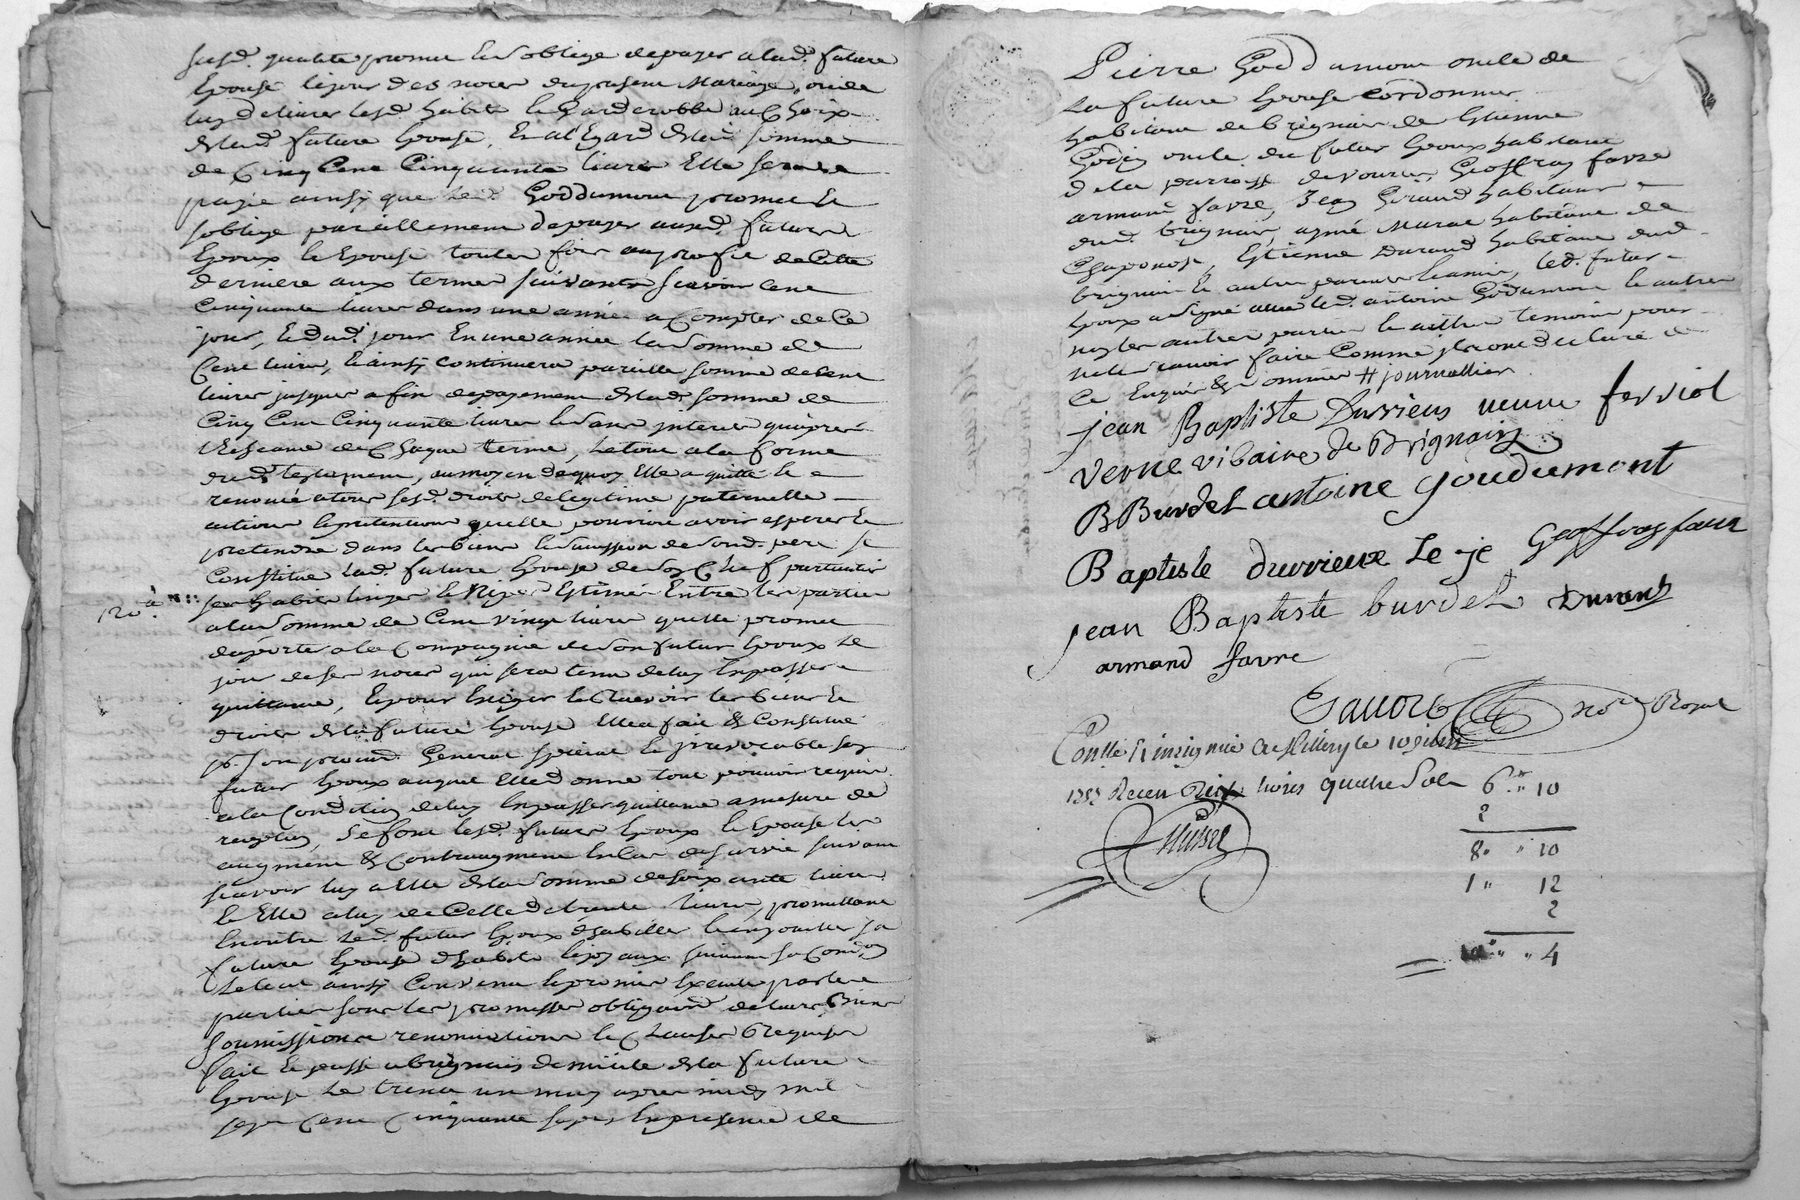 susd. qualité promet et s'oblige de payer a lad. future
Epouse le jour des noces du present Mariage, ou de
luy delivrer lesd. habits et Garderobbe au Choix
de lad. future Epouse, Et a l'Egard de lad. somme
de Cinq Cent Cinquante livres Elle sera
payée ainsy que led. Goddumont promet et
s'oblige pareillement de payer auxd. futurs
Epoux et Epouse toutes fois au profit de Cette
derniere aux termes suivants scavoir Cent
Cinquante livres dans une année a Compter de Ce
jour, Et dud. jour En une année la somme de
Cent livres, et ainsy continuera pareille somme de Cent
livres jusques a fin de payement de lad. somme de
Cinq Cent Cinquante livres et sans interet
de Chaque terme, Le tout a la forme
dud. testament, au moyen de quoy Elle a quitté et
renoncé a tous sesd. droits de legitime paternelle
actions et pretentions quelle pourroit avoir esperer et
pretendre dans les biens et succession de sond. pere se
Constitue lad. future Epouse de son Chef
ses habits linges et Estimés Entre les parties
120 ₶
a la somme de Cent vingt livres quelle promet
d'aporter a la Compagnie de son futur Epoux le
jour de ses noces qui sera tenu de luy En passer
quittance, Et pour Exiger et Recevoir les biens et
droits de la future Epouse Elle a fait & Constitué
po. son procur. General special et jrrevocable sop
futur Epoux auquel Elle donne tout pouvoir requis
a la Condition de luy En passer quittance a mesure de
se font lesd. futurs Epoux et Epouse les
augment & Contraugment En Cas de survie suivant
scavoir luy a Elle de la somme de soixante livres
et Elle a luy de Celle de trente livres, promettant
Enoutre led. futur Epoux d'habiller et sa
future Epouse d'habits et joyaux suivant sa Condon
Le tout ainsy Convenu et promis Executer par les
parties sous les promesses obligaons de leurs Biens
soumissions renonciations et Clauses Requises
fait et passé a brignais domicile de la future
Epouse Le trente un may apres midy mil
sept Cent Cinquante sept En presence de
Pierre Goddumont oncle de
La future Epouse Cordonnier
habitant de brignais de Etienne
oncle du futur Epoux habitant
de la parroisse de vourles Geoffray favre
armand favre, Jean Giraud habitans
dud. brignais, aymé Murat habitant de
Chaponost, Etienne Durand habitant dud.
brignais Et autres parens et amis, led. futur
Epoux a signé avec led. antoine Godumont et autres
non les autres parties et autres temoins pour
ne le scavoir faire Comme jls ont declaré de
Ce Enquis & sommés # journallier
jean Baptiste Durrieux ferriol
verne vicaire de Brignais
B Burdel antoine goudumont
Baptiste durrieux Le je Geoffray faure
jean Baptiste burdel Durand
armand favre
not. Royal
Conllé & insignué a st Millery le 10 juin
1757 Receu Dix livres quatre sols
6 ₶ " 10
2
8 " " 10
1 " 12
2
10 " " 4